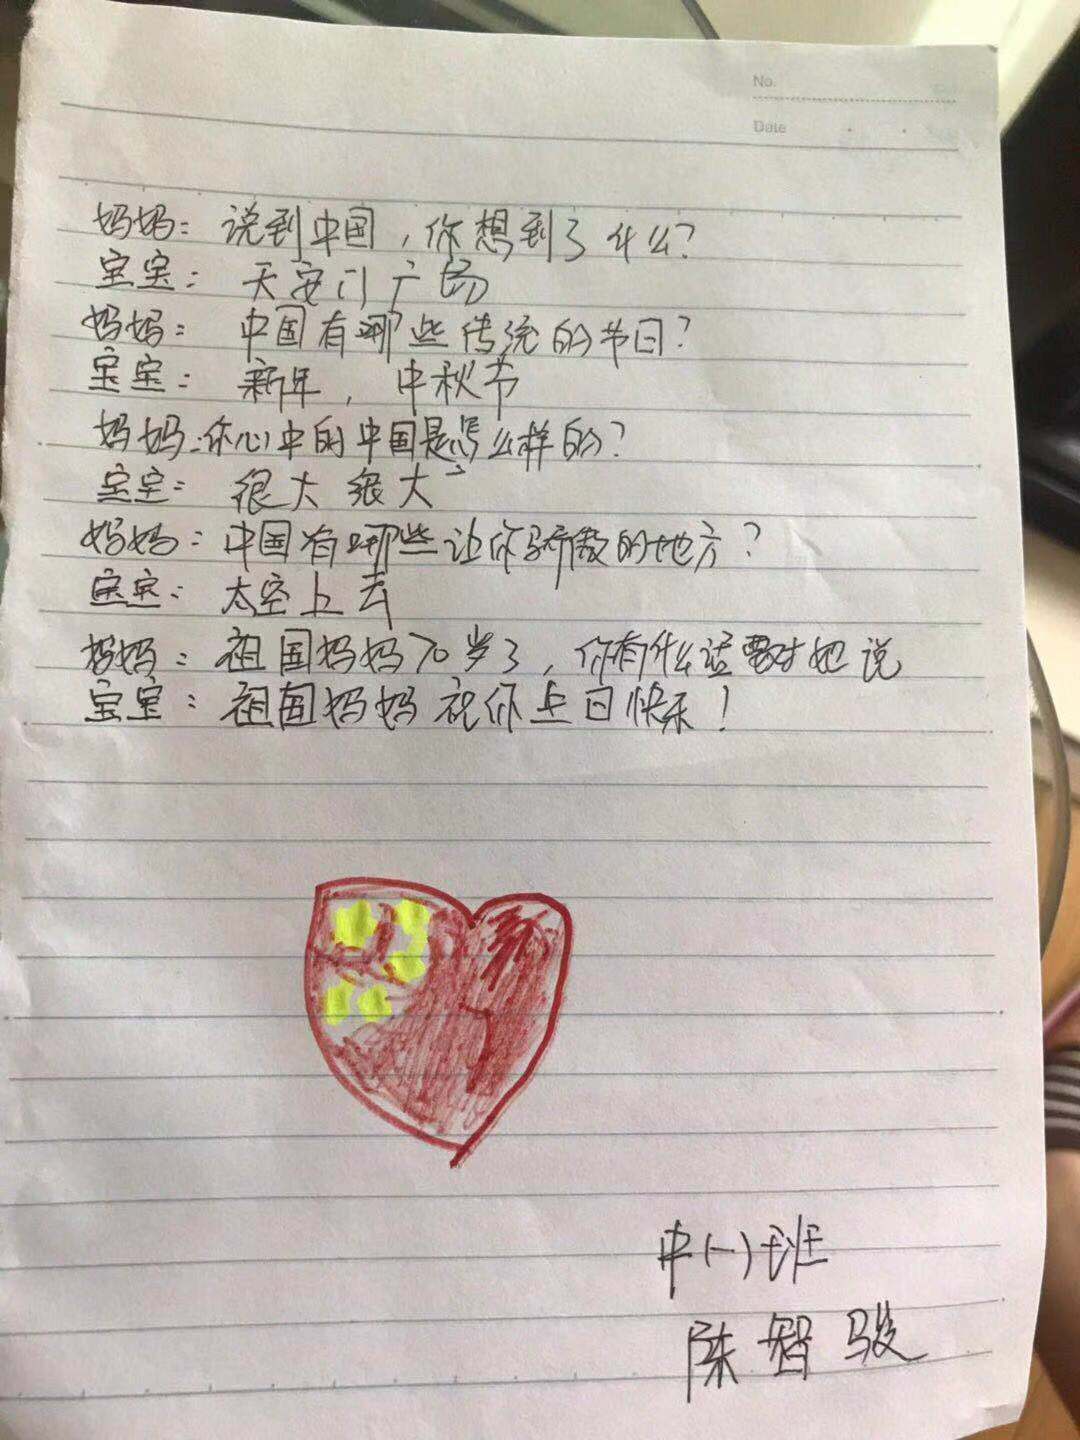 No.
Date
妈妈：说到中国，你想到了什么？
宝宝：天安门广场
妈妈：中国有哪些传统的节日？
宝宝：新年，中秋节
妈妈：你心中的中国是怎么样的？
宝宝：很大很大
妈妈：中国有哪些让你骄傲的地方？
宝宝：太空上去
妈妈：祖国妈妈70岁了，你有什么话要对她说
宝宝：祖国妈妈祝你生日快乐！
中(一)班
陈智骏